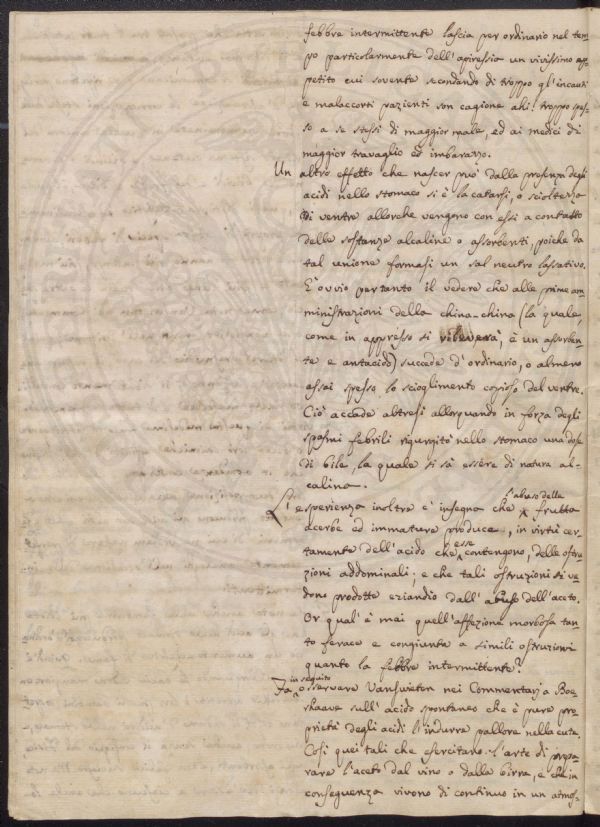 febbre intermittente lascia per ordinario nel tem-
po particolarmente dell'apiressia un vivissimo ap-
petito cui sovente secondando di troppo gl'incauti
e malaccorti pazienti son cagione ahi! troppo spes-
so a se stessi di maggior male, ed ai medici di
maggior travaglio ed imbarazzo.
Un altro effetto che nascer può dalla presenza degli
acidi nello stomaco si è la catarsi, o scioltezza
di ventre allorche vengono con essi a contatto
delle sostanze alcaline o assorbenti, poiche da
tal unione formasi un sal neutro lassativo.
È ovvio pertanto il vedere che alle prime am-
ministrazioni della china-china (la quale,
come in appresso si rileverà, è un assorben-
te e antacido) succede d'ordinario, o almeno
assai spesso lo scioglimento copioso del ventre.
Ciò accade altresì allorquando in forza degli
spasmi febrili rigurgitò nello stomaco una dose
di bile, la quale si sà essere di natura al-
calina.
L'esperienza inoltre c'insegna che l'abuso della frutta
acerbe ed immature produce, in virtù cer-
tamente dell'acido che esse contengono, delle ostru-
zioni addominali; e che tali ostruzioni si ve-
dono prodotte eziandio dall'abuso dell'aceto.
Or qual'è mai quell'affezione morbosa tan-
to ferace e congiunta a simili ostruzioni
quanto la febbre intermittente?
Fa in seguito osservare Vanswieten nei Commentarj a Boe-
rhaave sull'acido spontaneo che è pure pro-
prietà degli acidi l'indurre pallore nella cute.
Così quei tali che esercitano l'arte di prepa-
rare l'aceto dal vino o dalla birra, e che in
conseguenza vivono di continuo in un atmos-